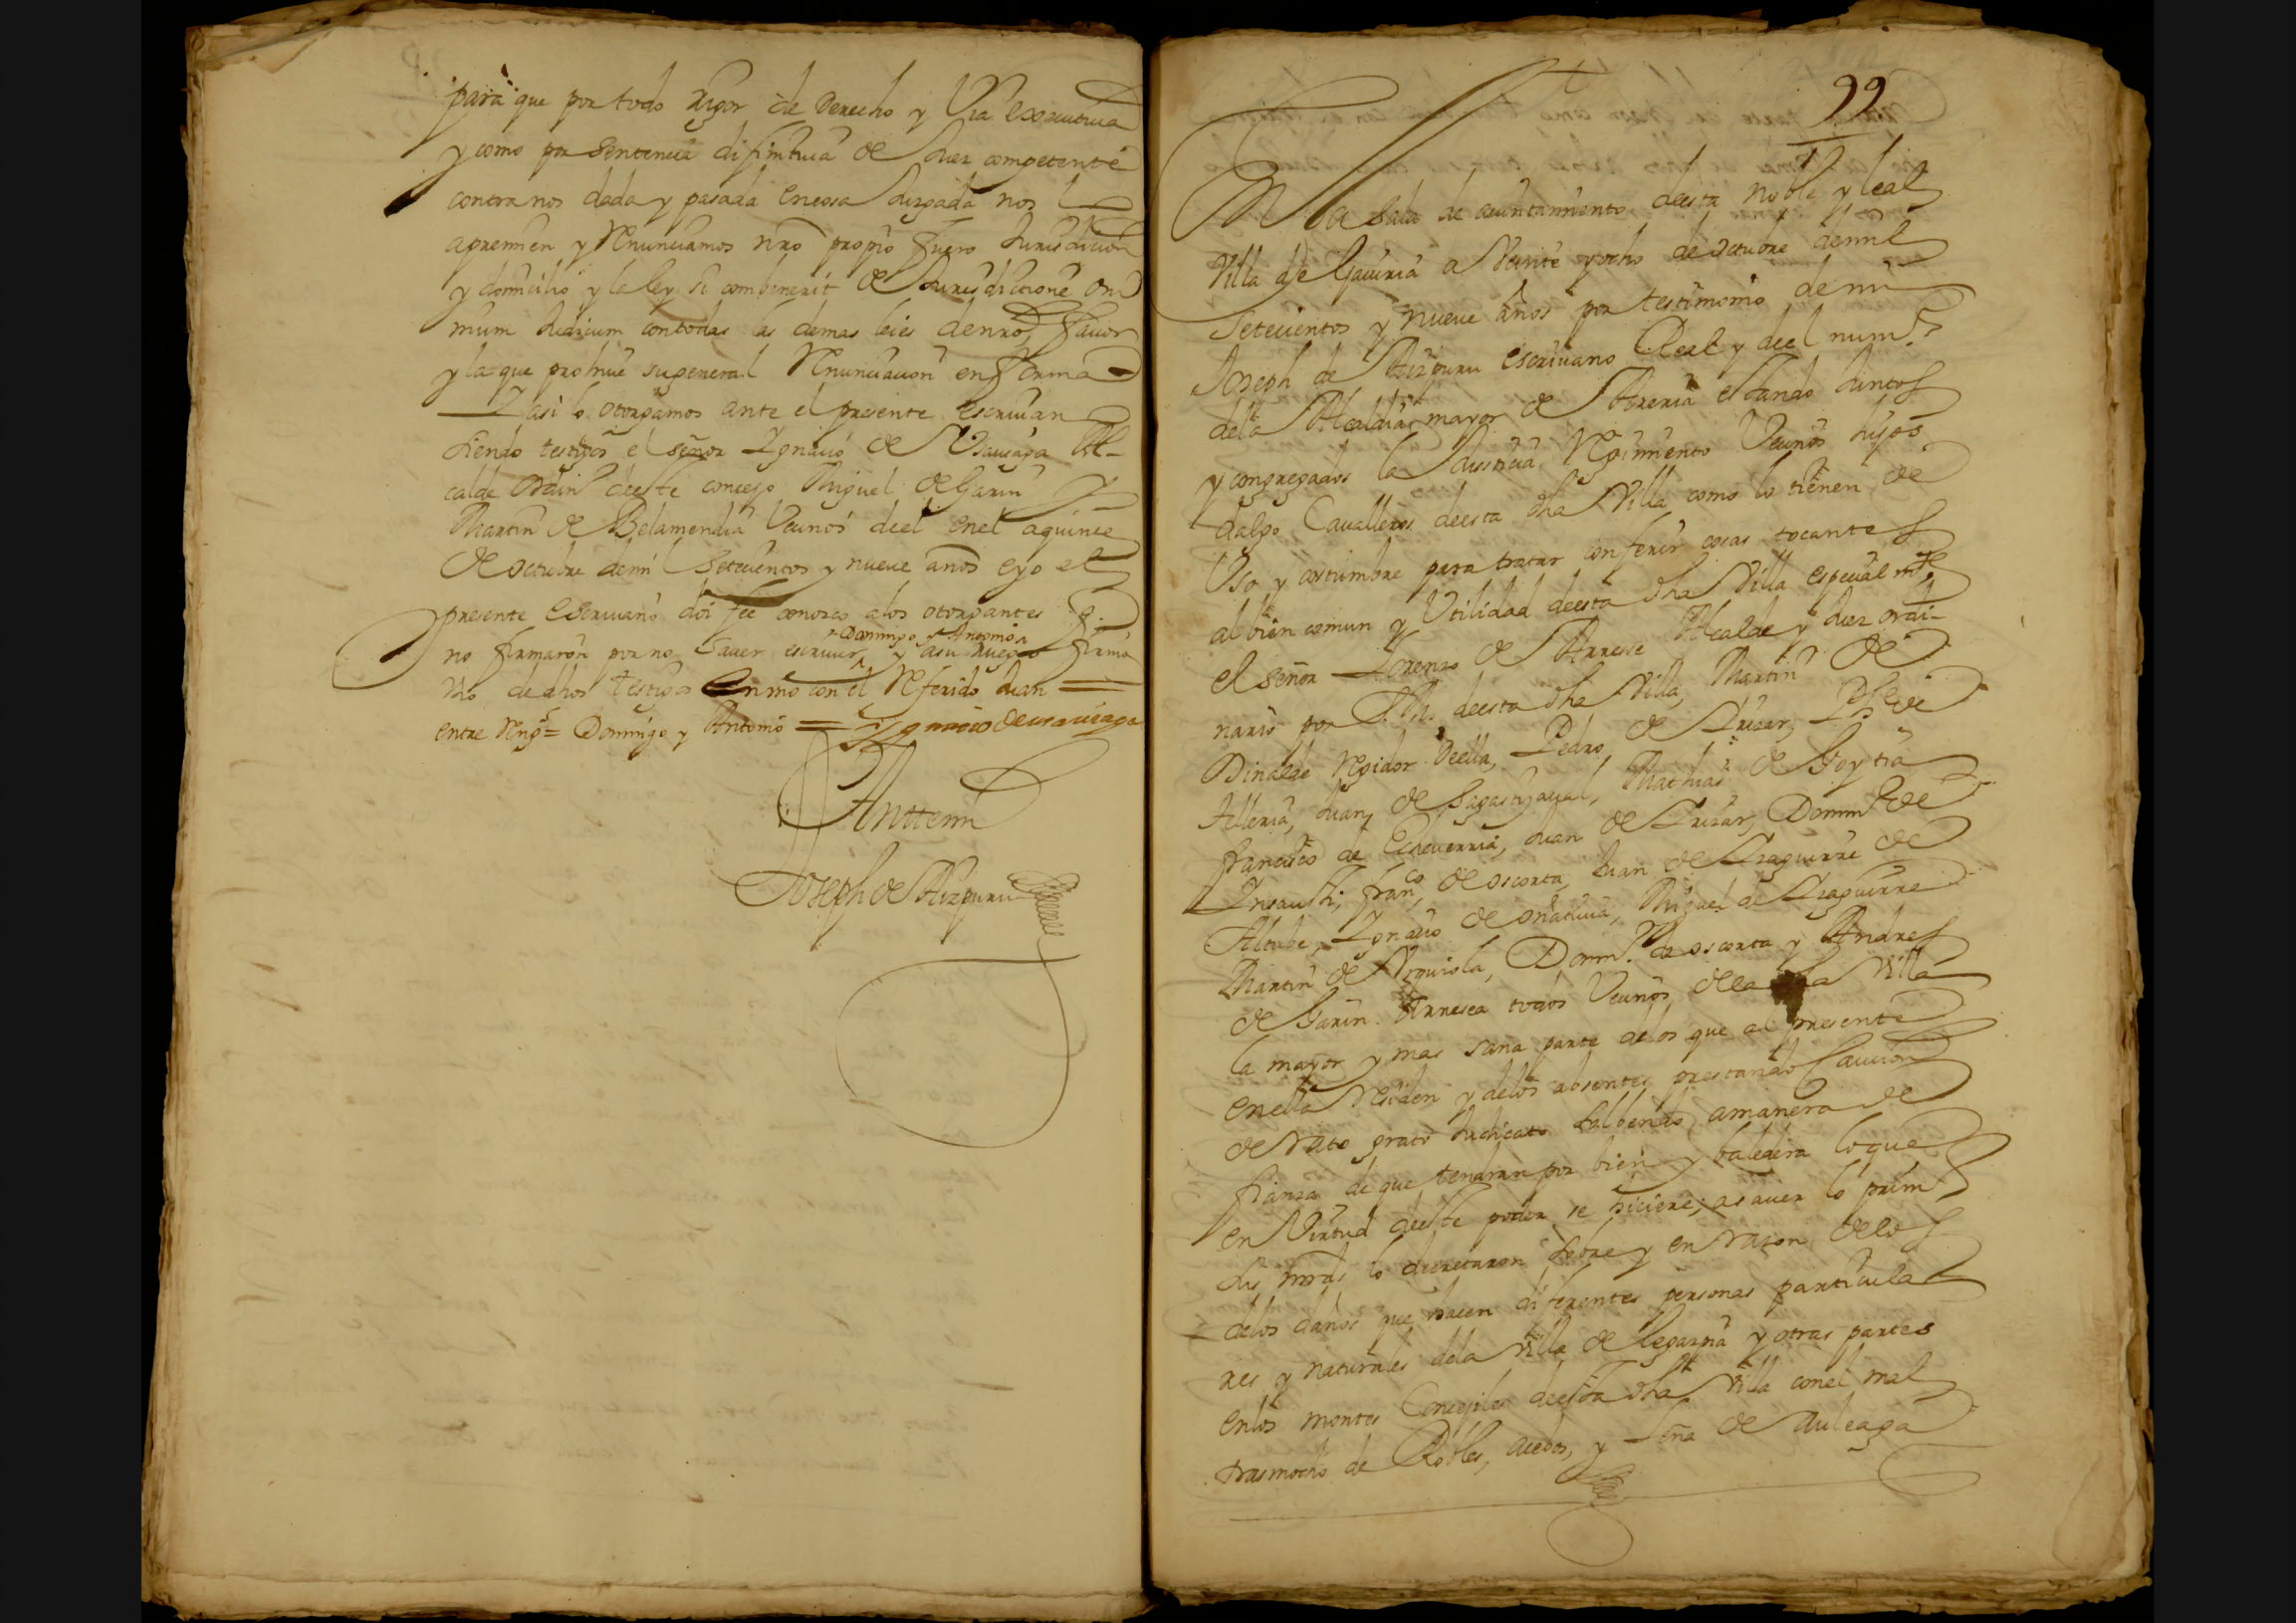 para que por todo rigor de derecho y Via executiua
y como por Sentencia difinitiua de Juez competente
contra nos dada y pasada en cossa Juzgada nos
apremien y Renunciamos nro propio fuero Jurisdicion
y domicilio y la ley si combenerit de Jurisdictione oni
mum Judicum con todas las demas leies de nro fauor
y la que prohiue su general Renunciacion en forma
Y asi lo otorgamos ante el presente escriuan
siendo testigos el señor Ygnacio de Vsausaga Al-
calde Ordin.º de este concejo Miguel de Garin y
Martin de Belamendia Vecinos de el en el a quince
de octubre de mil Setecientos y nueue años e yo el
presente escriuano doi fee conozco a los otorgantes q.
Domingo y Antonio
no firmaron por no sauer escriuir y a su ruego firmo
Vno de dhos testigos en mo con el Referido Juan
entre Reng.s = Domingo y Antonio = Ygnacio de vsausaga
Antemi
Joseph de Aizpuru
99
En la Sala de aiuntamiento de esta noble y leal
Villa de Gauiria a Veinte y ocho de octubre de mil
Setecientos y nueue años por testimonio de mi
Joseph de Aizpuru escriuano Real y del num.º
de la Alcaldia mayor de Areria estando Juntos
y congregados la Justicia Regimiento Vecinos hijos
dalgo Caualleros de esta dha Villa como lo tienen de
Vso y costumbre para tratar conferir cosas tocantes
al bien comun y Utilidad de esta dha Villa especialmte
el señor Lorenzo de Arrese Alcalde y Juez ordi-
nario por S. M. de esta dha Villa, Martin de
Dinalde regidor de ella, Pedro de Irizar, Ph.e de
Telleria, Juan de Sagastizaual, Mathias de Goytia
Francisco de Echeuerria, Juan de Irizar, Domin.º de
Insausti, Fran.co de oscorta, Juan de Izaguirre de
Altube, Ygnacio de oñatiuia, Miguel de Izaguirre
Martin de Vrquiola, Dom.º de oscorta y Andres
de Garin Arresea todos Vecinos de la dha Villa
la mayor y mas sana parte de los que al presente
en ella residen y de los absentes prestando Caucion
de rato grato Judicato soluendo a manera de
fianza de que tendran por bien y baledera lo que
en Virtud de este poder se hiciere; a sauer lo prim.º
Sus mrds lo decretaron sobre y en razon de los
de los daños que hacen diferentes personas particula
res y naturales de la Villa de Legazpia y otras partes
en los montes Concejiles de esta dha Villa con el mal
trasmocho de Robles, acebos, y leña de auleaga